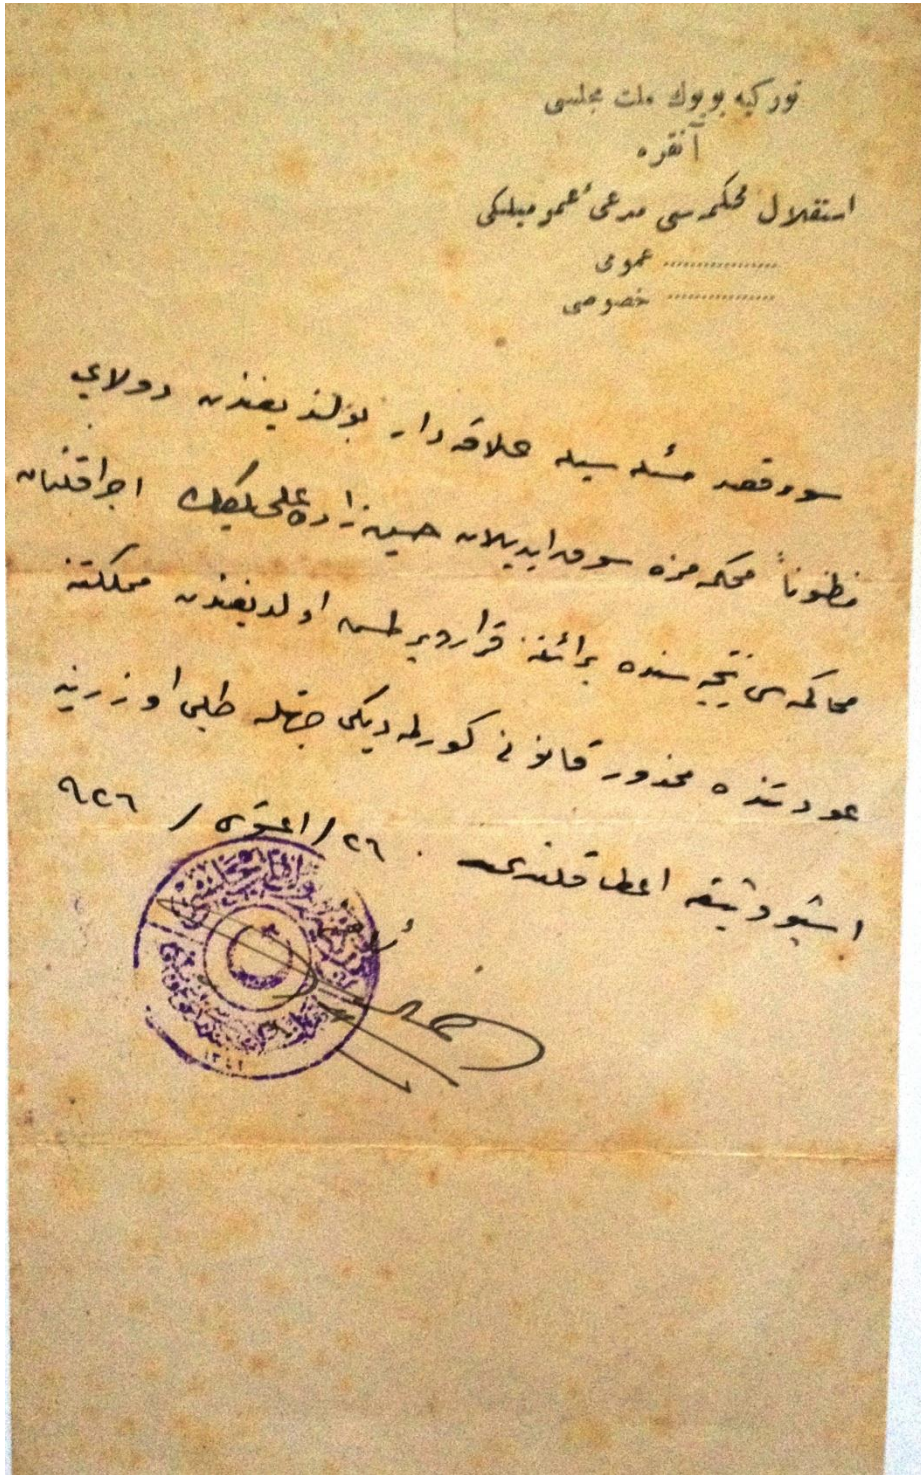 توركيه بويوك ملت مجلسى
آنقره
استقلال محكمه سى مدعىٔ عموميلكى
عمومى
خصوصى
سوء قصد مسئله سيله علاقه دار بولنديغندن دولايى
مظنوناً محكمه مزه سوق ايديلان حسين زاده على بك اجرا قلنان
محاكمه سى نتيجه سنده برائتنه قرار ويرلمش اولديغندن مملكتنه
عودتنده محذور قانونى كورلمديكى جهتله طلبى اوزرينه
اشبو وثيقه اعطا قلندى ٢٦ / اغستوس / ٩٢٦
١٣٤٢